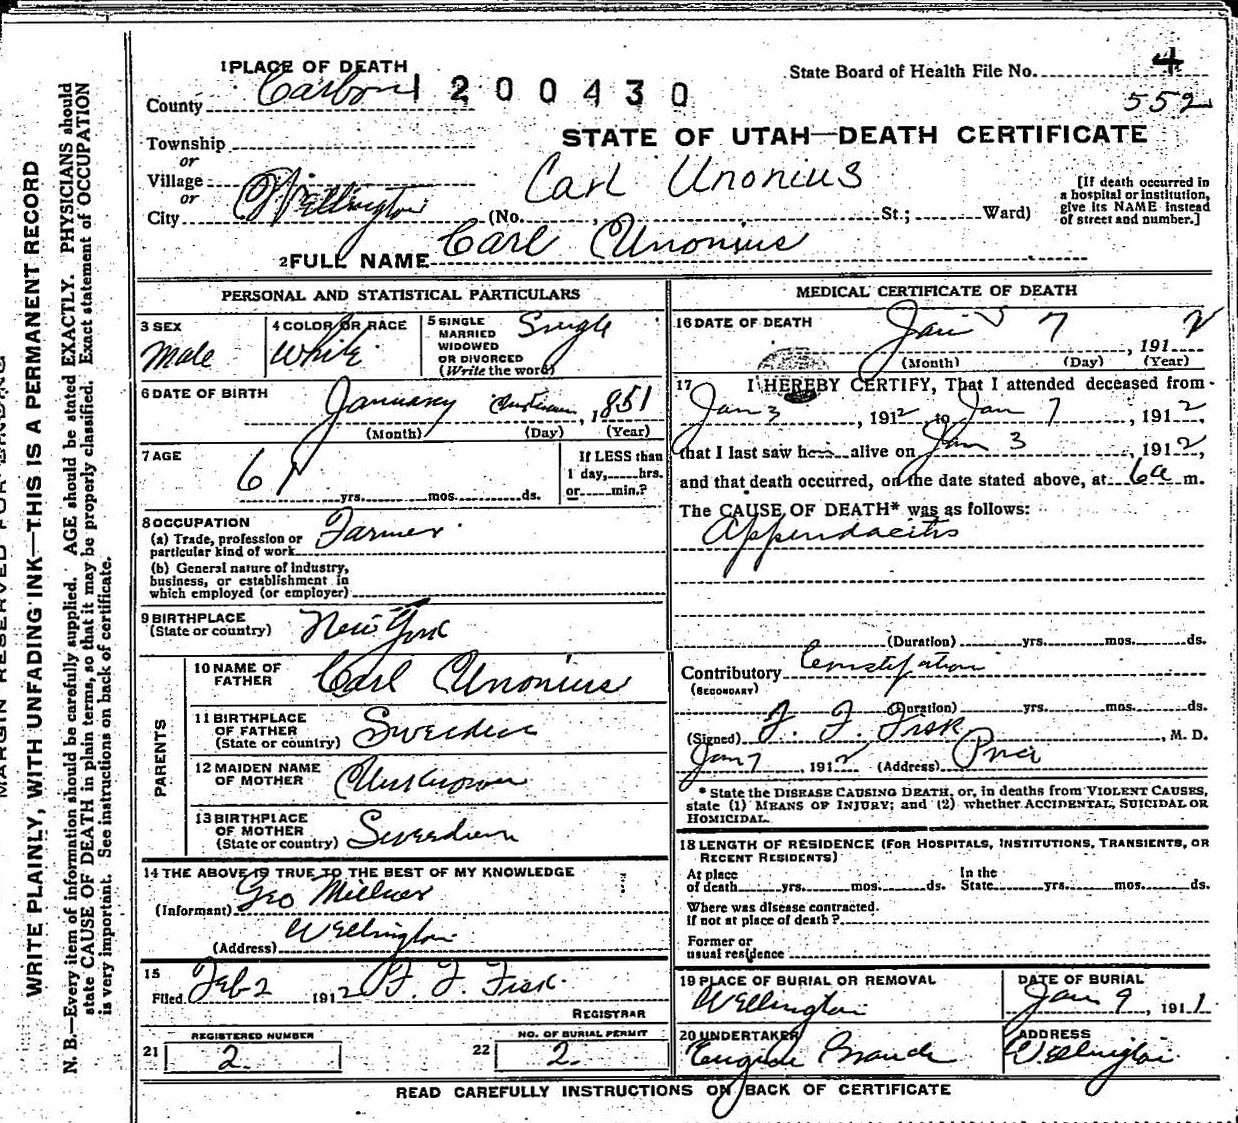 1 PLACE OF DEATH
County Carbon 1 2 0 0 4 3 0
State Board of Health File No. 4
552
STATE OF UTAH—DEATH CERTIFICATE
Township
or
Village
or
City Wellington (No. , St.; Ward)
Carl Unonius
[If death occurred in
a hospital or institution,
give its NAME instead
of street and number.]
2 FULL NAME Carl Unonius
PERSONAL AND STATISTICAL PARTICULARS
3 SEX
Male
4 COLOR OR RACE
White
5 SINGLE
MARRIED
WIDOWED
OR DIVORCED
(Write the word)
Single
6 DATE OF BIRTH
January , 1851
(Month) (Day) (Year)
7 AGE
61 yrs. mos. ds.
If LESS than
1 day, hrs.
or min.?
8 OCCUPATION
(a) Trade, profession or
particular kind of work
Farmer
(b) General nature of industry,
business, or establishment in
which employed (or employer)
9 BIRTHPLACE
(State or country)
New York
PARENTS
10 NAME OF
FATHER
Carl Unonius
11 BIRTHPLACE
OF FATHER
(State or country)
Sweeden
12 MAIDEN NAME
OF MOTHER
Unknown
13 BIRTHPLACE
OF MOTHER
(State or country)
Sweeden
14 THE ABOVE IS TRUE TO THE BEST OF MY KNOWLEDGE
(Informant) Geo Milner
(Address) Wellington
15
Filed Feb 2 1912 F. F. Fisk
REGISTRAR
REGISTERED NUMBER
21 2.
NO. OF BURIAL PERMIT
22 2.
MEDICAL CERTIFICATE OF DEATH
16 DATE OF DEATH
Jan 7 , 191 2
(Month) (Day) (Year)
17 I HEREBY CERTIFY, That I attended deceased from
Jan 3 , 1912, to Jan 7 , 1912,
that I last saw h alive on Jan 3 , 1912,
and that death occurred, on the date stated above, at 6a m.
The CAUSE OF DEATH* was as follows:
Appendacitis
(Duration) yrs. mos. ds.
Contributory Constipation
(SECONDARY)
(Duration) yrs. mos. ds.
(Signed) F. F. Fisk , M. D.
Jan 7 , 1912 (Address) Price
* State the DISEASE CAUSING DEATH, or, in deaths from VIOLENT CAUSES,
state (1) MEANS OF INJURY; and (2) whether ACCIDENTAL, SUICIDAL OR
HOMICIDAL.
18 LENGTH OF RESIDENCE (FOR HOSPITALS, INSTITUTIONS, TRANSIENTS, OR
RECENT RESIDENTS)
At place
of death yrs. mos. ds.
In the
State yrs. mos. ds.
Where was disease contracted.
if not at place of death?
Former or
usual residence
19 PLACE OF BURIAL OR REMOVAL
Wellington
DATE OF BURIAL
Jan 9 , 191 1
20 UNDERTAKER
Eugene
ADDRESS
Wellington
READ CAREFULLY INSTRUCTIONS ON BACK OF CERTIFICATE
MARGIN RESERVED FOR BINDING
WRITE PLAINLY, WITH UNFADING INK—THIS IS A PERMANENT RECORD
N. B.—Every item of information should be carefully supplied. AGE should be stated EXACTLY. PHYSICIANS should
state CAUSE OF DEATH in plain terms, so that it may be properly classified. Exact statement of OCCUPATION
is very important. See instructions on back of certificate.